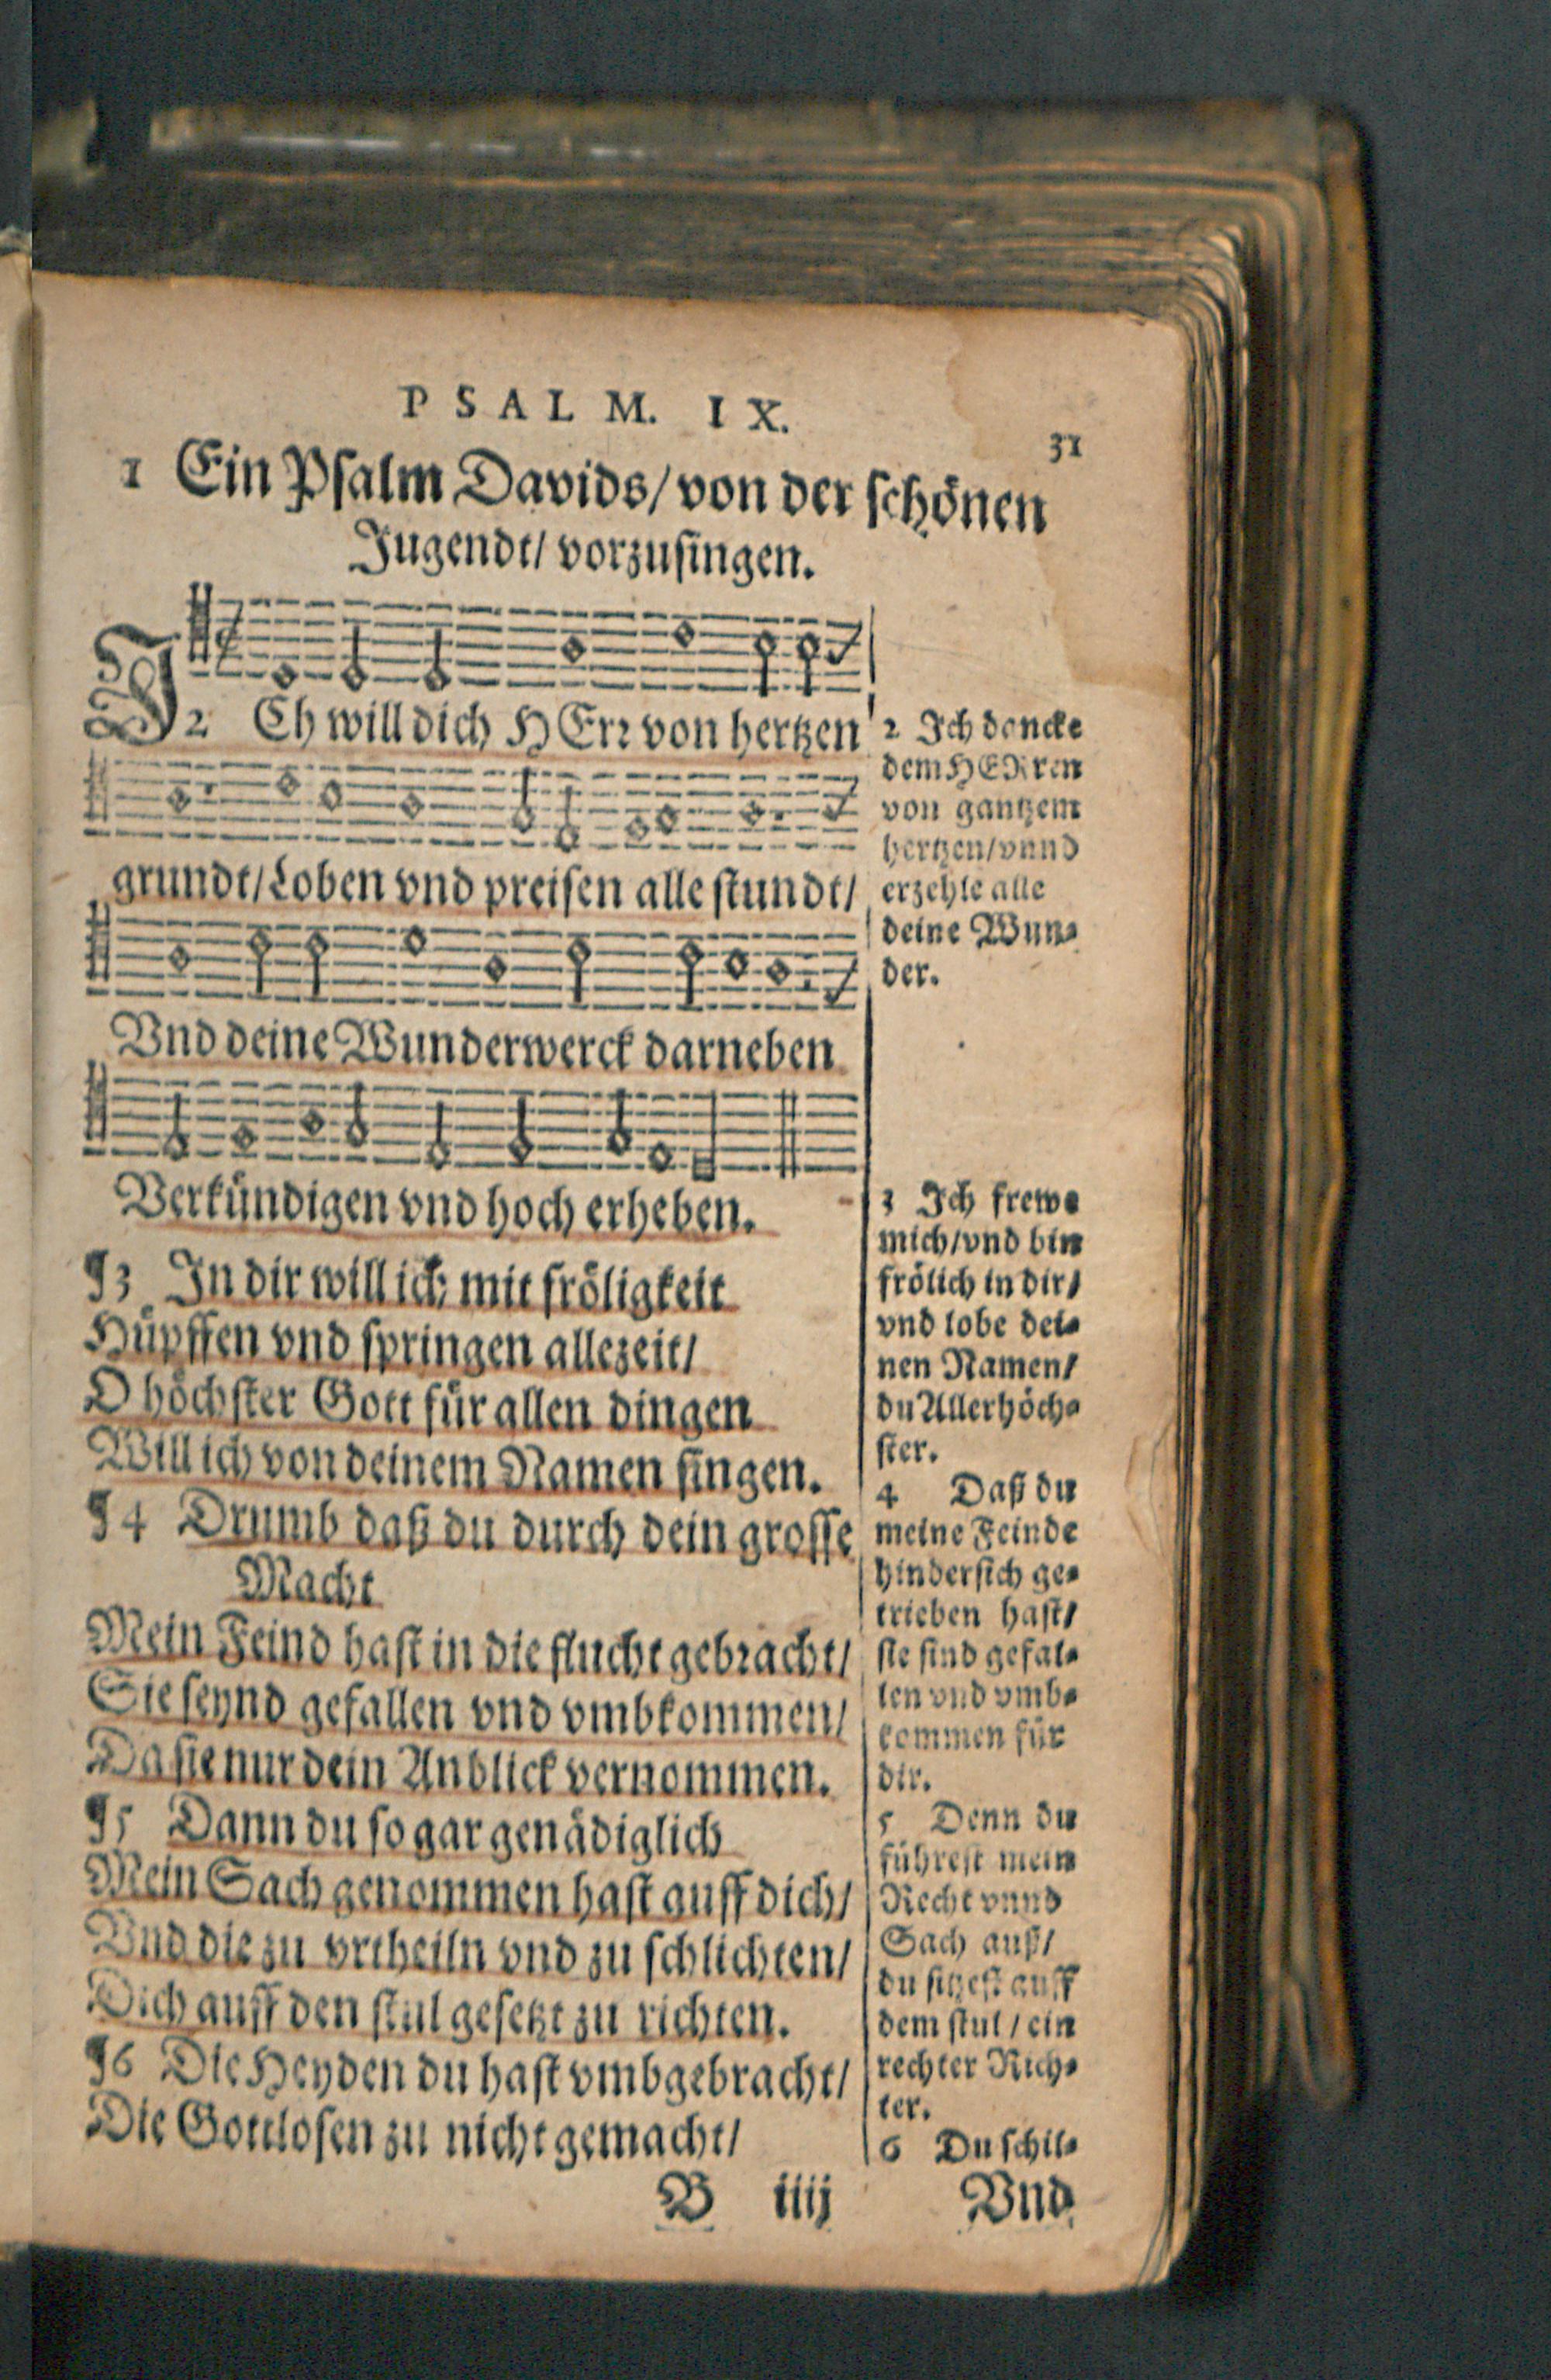 PSALM. IX.
31
1 Ein Psalm Davids/ von der schönen
Jugendt/ vorzusingen.
J2 Ch will dich HErr von hertzen
grundt/ Loben vnd preisen alle stundt/
Vnd deine Wunderwerck darneben
Verkündigen vnd hoch erheben.
¶3 In dir will ich mit fröligkeit
Hüpffen vnd springen allezeit/
O höchster Gott für allen dingen
Will ich von deinem Namen singen.
¶4 Drumb daß du durch dein grosse
Macht
Mein Feind hast in die flucht gebracht/
Sie seynd gefallen vnd vmbkommen/
Da sie nur dein Anblick vernommen.
¶5 Dann du so gar genädiglich
Mein Sach genommen hast auff dich/
Vnd die zu vrtheiln vnd zu schlichten/
Dich auff den stul gesetzt zu richten.
¶6 Die Heyden du hast vmbgebracht/
Die Gottlosen zu nicht gemacht/
2 Ich dancke
dem HERren
von gantzem
hertzen/ vnnd
erzehle alle
deine Wun-
der.
3 Ich frewe
mich/ vnd bin
frölich in dir/
vnd lobe dei-
nen Namen/
du Allerhöch-
ster.
4 Daß du
meine Feinde
hindersich ge-
trieben hast/
sie sind gefal-
len vnd vmb-
kommen für
dir.
5 Denn du
führest mein
Recht vnnd
Sach auß/
du sitzest auff
dem stul / ein
rechter Rich-
ter.
6 Du schil-
B iiij
Vnd